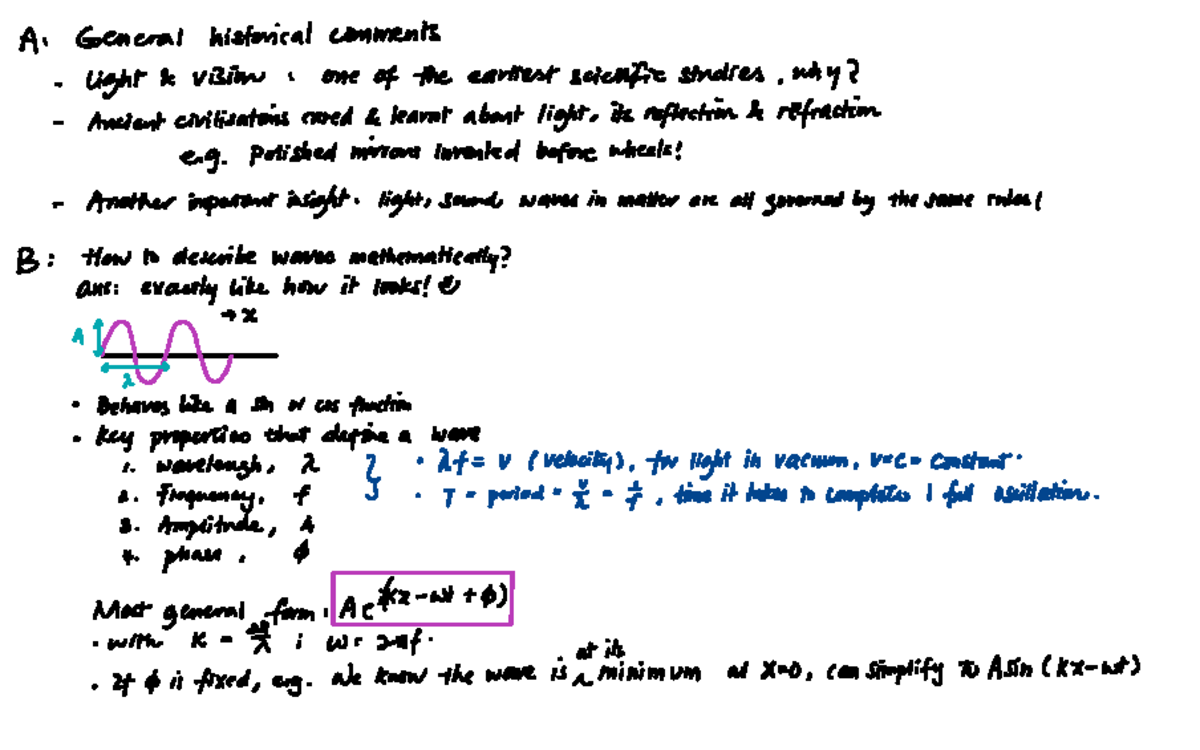 A: General historical comments
- Light & Vision : one of the earliest scientific studies, why?
- Ancient civilisations cared & learnt about light, its reflection & refraction
e.g. Polished mirrors invented before wheels!
- Another important insight: light, sound, waves in matter are all governed by the same rules!
B: How to describe waves mathematically?
ans: exactly like how it looks!
→ x
A
λ
• Behaves like a sin or cos function
• key properties that define a wave
1. wavelength, λ
• λf = v (velocity), for light in vacuum, v=c= constant.
2. Frequency, f
• T = period = v/λ = 1/f, time it takes to complete 1 full oscillation.
3. Amplitude, A
4. phase, φ
Most general form: A e^i(kx-ωt+φ)
• with k = 2π/λ ; ω = 2πf.
• If φ is fixed, e.g. we know the wave is at its minimum at x=0, can simplify to A sin (kx-ωt)